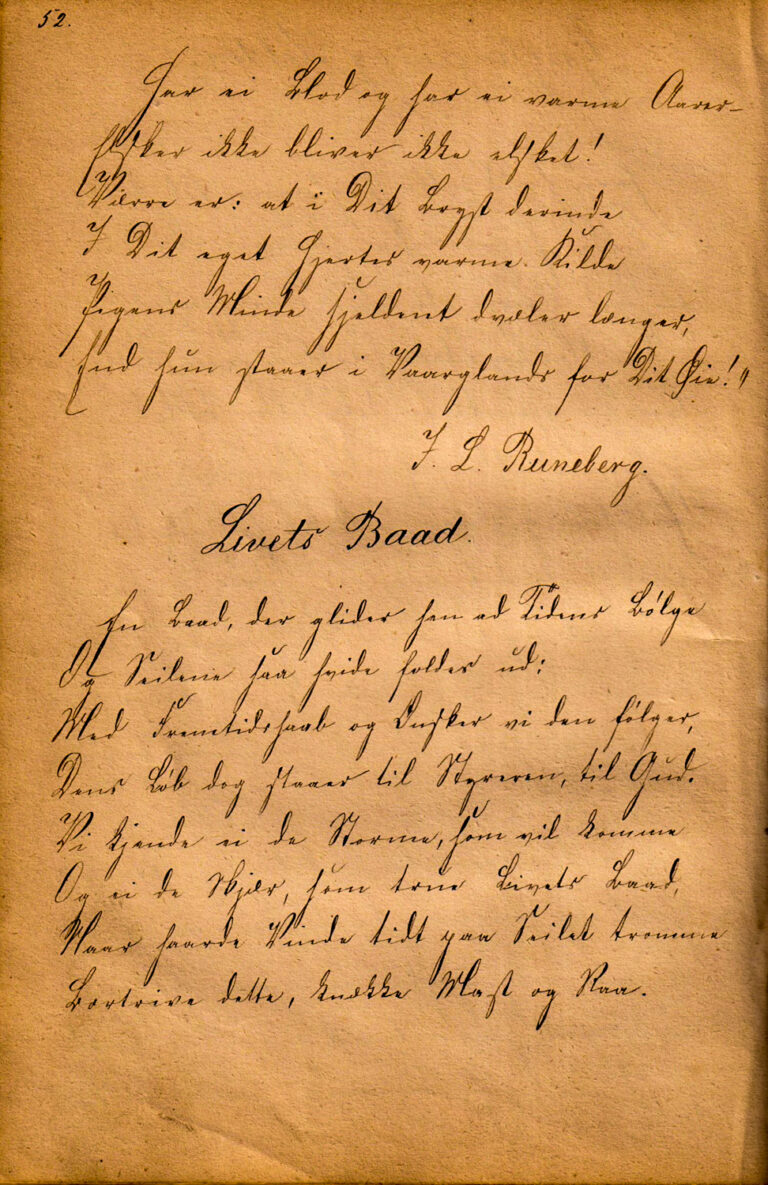 52.
Har ei Blod og har ei varme Aarer–
Elsker ikke bliver ikke elsket!
Værre er: at i Dit Bryst derinde
I Dit eget Hjertes varme Kilde
Pigens Minde sjeldent dvæler længer,
End hun staaer i Vaarglands for Dit Øie!"
J. L. Runeberg.
Livets Baad.
En Baad, der glider hen ad Tidens Bølge
Og Seilene saa hvide foldes ud;
Med Fremtidshaab og Ønsker vi den følger,
Dens Løb dog staaer til Styreren, til Gud.
Vi kjende ei de Storme, som vil komme
Og ei de Skjær, som true Livets Baad,
Naar haarde Vinde tidt paa Seilet tromme
Bortrive dette, knække Mast og Raa.